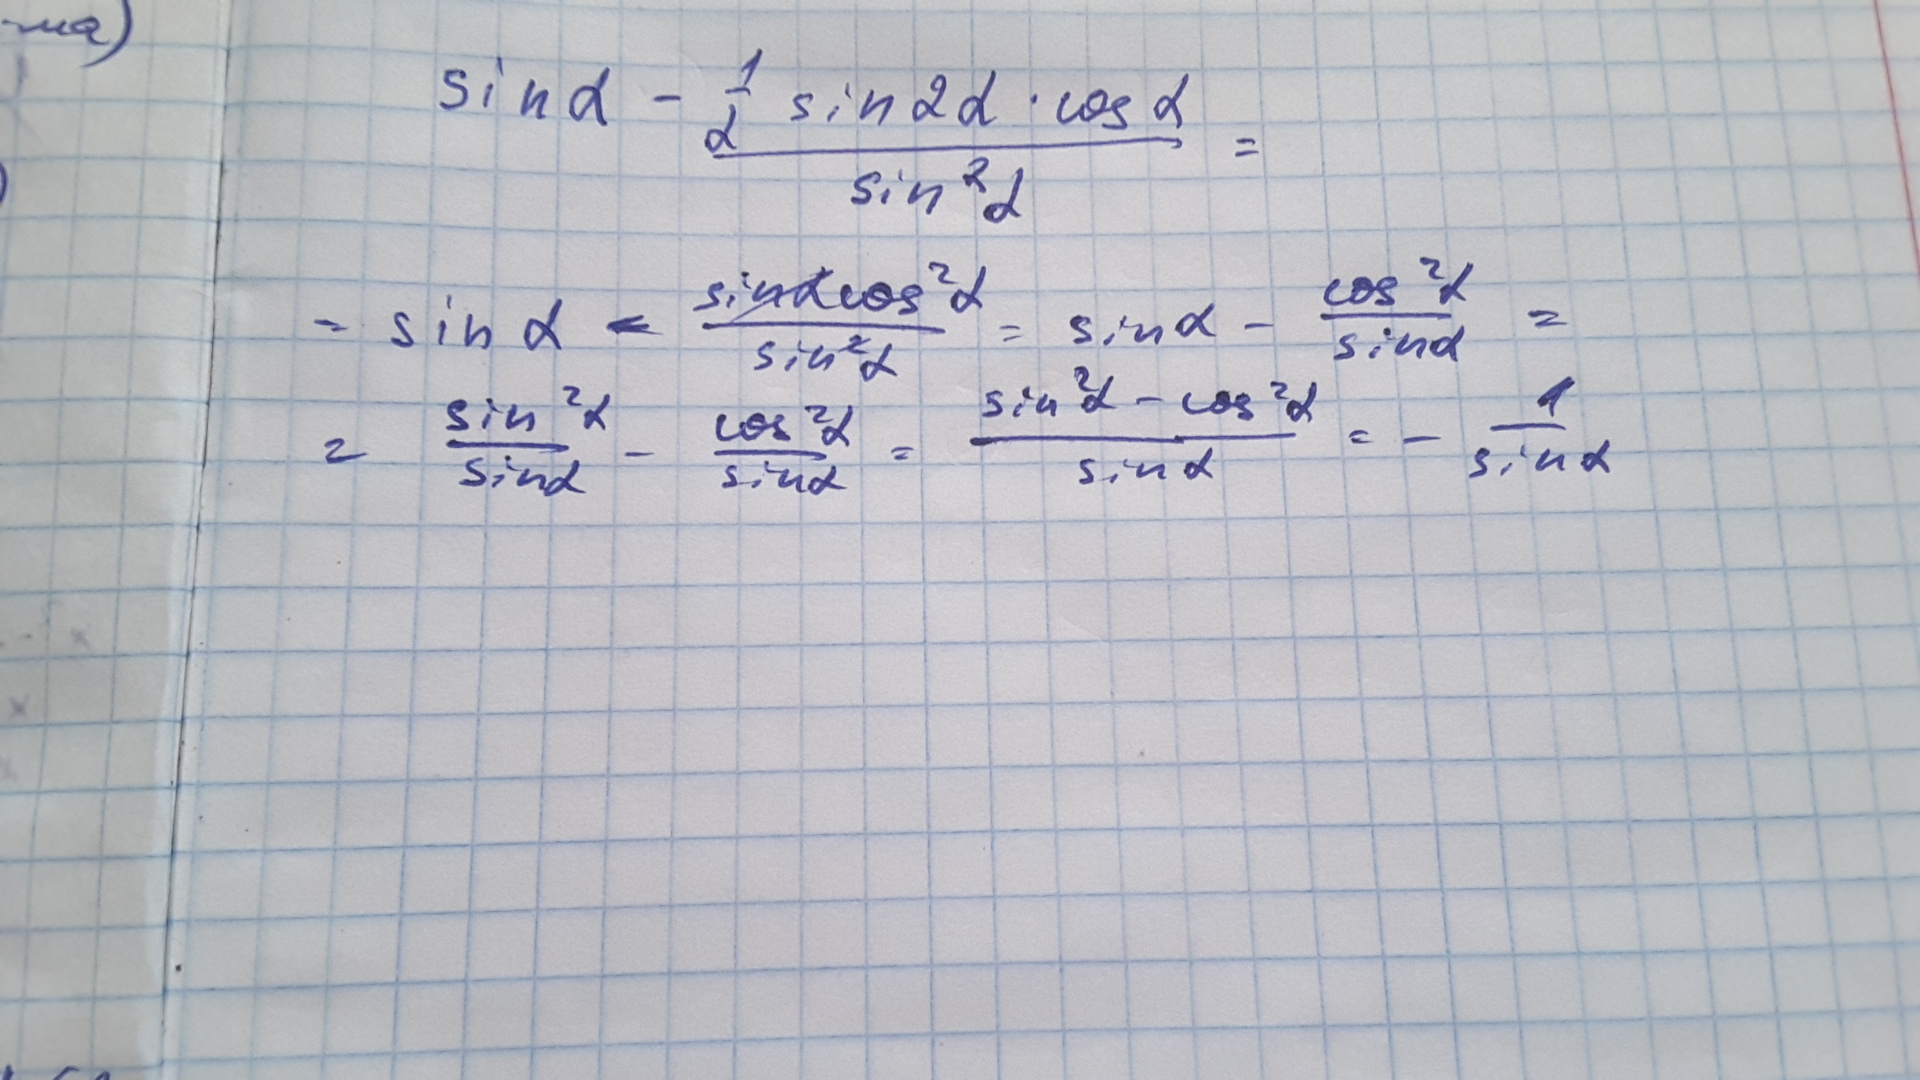 ma)
sin α - 1/2 sin 2α · cos α / sin²α =
= sin α - sinα cos²α / sin²α = sin α - cos²α / sinα =
= sin²α / sinα - cos²α / sinα = sin²α - cos²α / sin α = - 1 / sin α